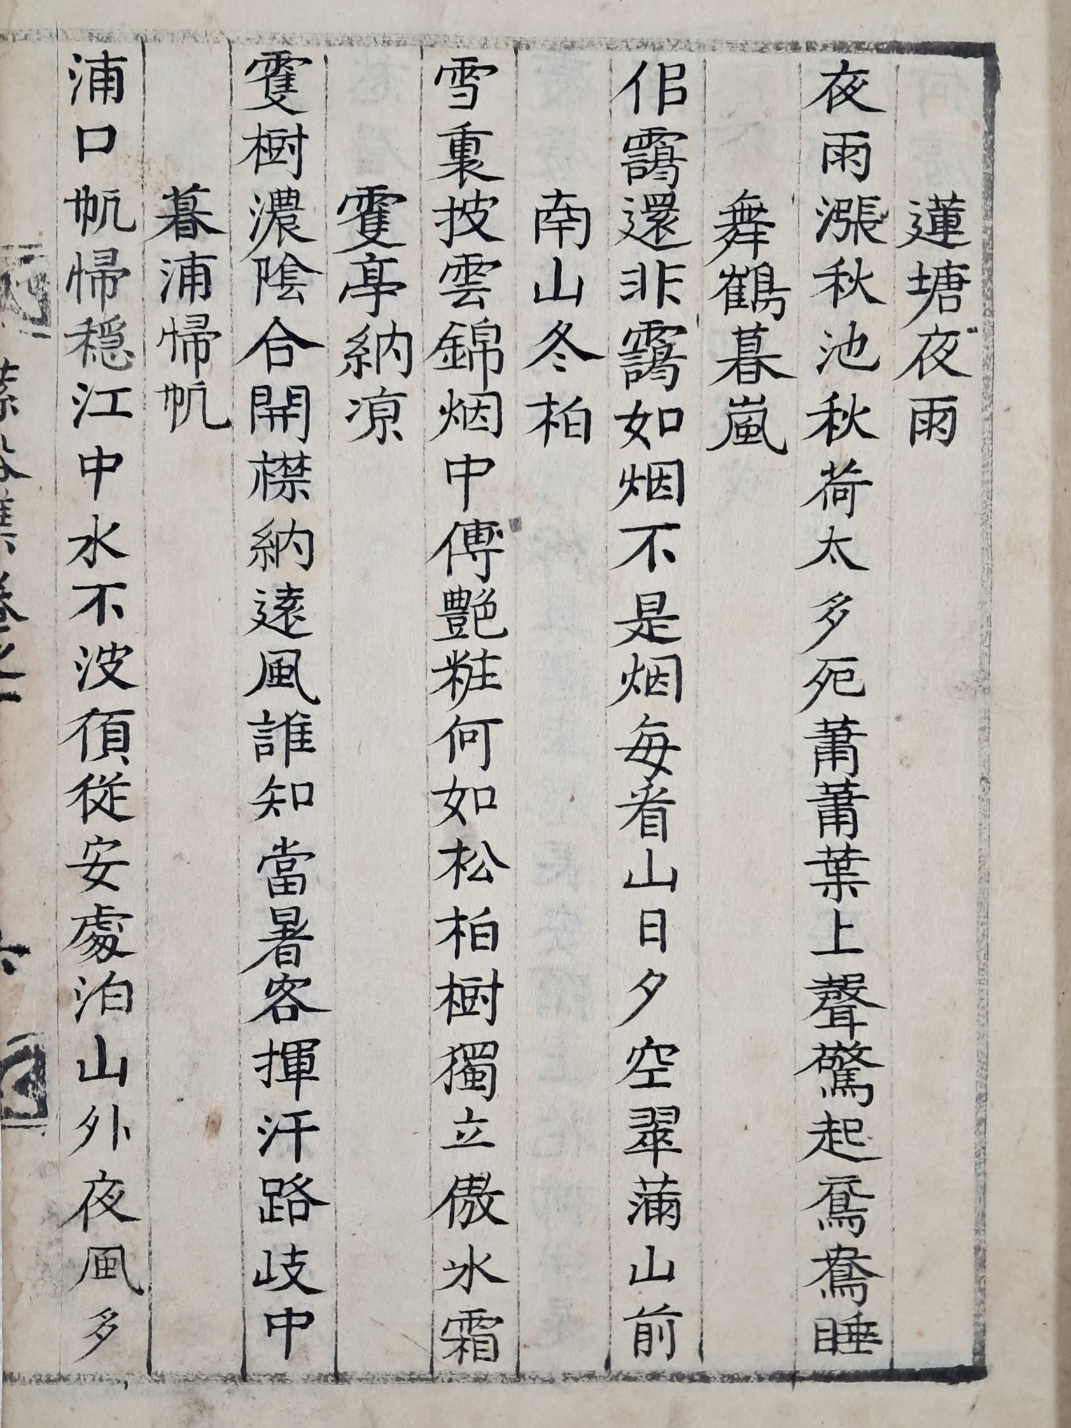 蓮塘夜雨
夜雨漲秋池秋荷太多死蕭蕭葉上聲驚起鴛鴦睡
舞鶴暮嵐
佀靄還非靄如烟不是烟每看山日夕空翠滿山前
南山冬柏
雪裏披雲錦烟中傅艷粧何如松柏樹獨立傲氷霜
亭納凉
樹濃陰合開襟納遠風誰知當暑客揮汗路岐中
暮浦帰帆
浦口帆帰穩江中水不波湏從安處泊山外夜風多
集卷之一
六